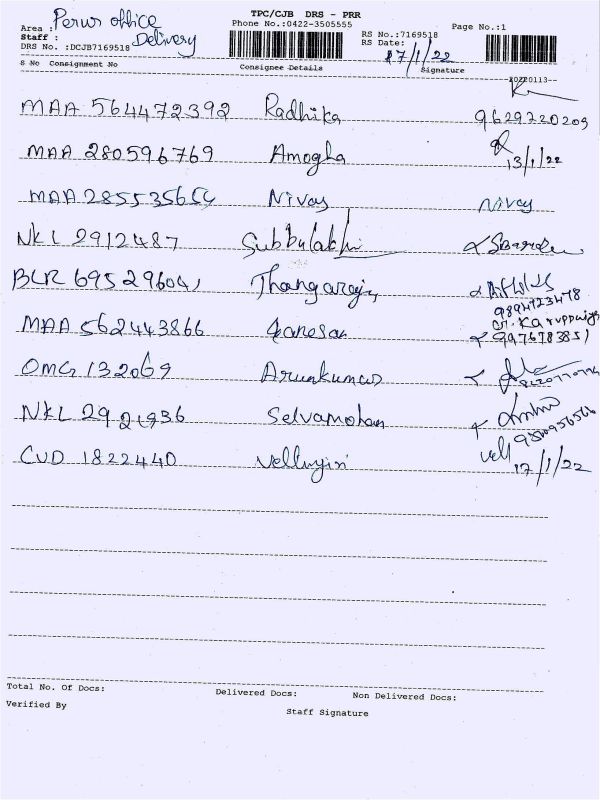 TPC/CJB DRS - PRR
Area : Perur office
Phone No.:0422-3505555
Page No.:1
Staff : Delivery
RS No.:7169518
DRS No. :DCJB7169518
RS Date: 17/1/22
S No Consignment No Consignee Details Signature
20220113--
MAA 564472392 Radhika 9629220209
MAA 280596769 Amogha 13/1/22
MAA 285535654 Nivas Nivas
NKL 2912487 Subbulakhi
BLR 69529604 Thangaraj
9894723478
MAA 562443866 Ganesan 9976783851
OMG 132069 Arunkumar
NKL 2921936 Selvamohan
CUD 1822440 Velluyiri Vell 17/1/22
Total No. Of Docs: Delivered Docs: Non Delivered Docs:
Verified By
Staff Signature